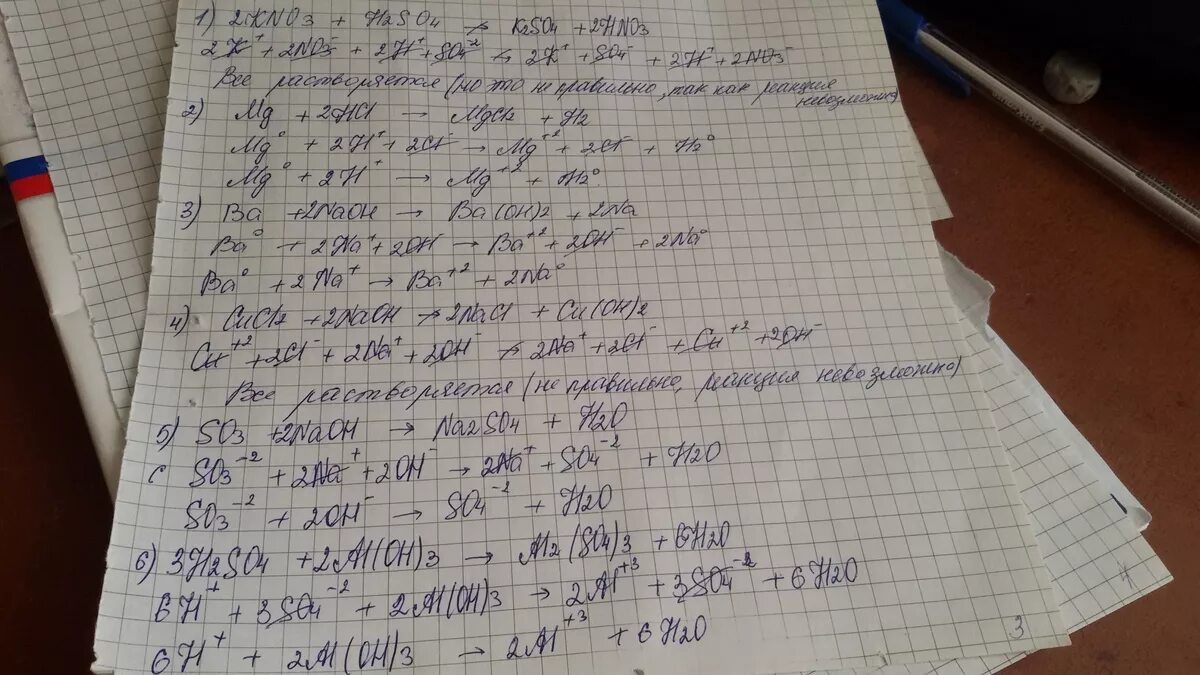 1) 2KNO3 + H2SO4 ↛ K2SO4 + 2HNO3
2K⁺ + 2NO3⁻ + 2H⁺ + SO4⁻² ↛ 2K⁺ + SO4⁻ + 2H⁺ + 2NO3⁻
Все растворяется (но это не правильно, так как реакция
невозможна)
2) Mg + 2HCl → MgCl2 + H2
Mg⁰ + 2H⁺ + 2Cl⁻ → Mg⁺² + 2Cl⁻ + H2⁰
Mg⁰ + 2H⁺ → Mg⁺² + H2⁰
3) Ba + 2NaOH → Ba(OH)2 + 2Na
Ba⁰ + 2Na⁺ + 2OH⁻ → Ba⁺² + 2OH⁻ + 2Na⁰
Ba⁰ + 2Na⁺ → Ba⁺² + 2Na⁰
4) CuCl2 + 2NaOH ↛ 2NaCl + Cu(OH)2
Cu⁺² + 2Cl⁻ + 2Na⁺ + 2OH⁻ ↛ 2Na⁺ + 2Cl⁻ + Cu⁺² + 2OH⁻
Все растворяется (не правильно, реакция невозможно)
5) SO3 + 2NaOH → Na2SO4 + H2O
SO3⁻² + 2Na⁺ + 2OH⁻ → 2Na⁺ + SO4⁻² + H2O
SO3⁻² + 2OH⁻ → SO4⁻² + H2O
6) 3H2SO4 + 2Al(OH)3 → Al2(SO4)3 + 6H2O
6H⁺ + 3SO4⁻² + 2Al(OH)3 → 2Al⁺³ + 3SO4⁻² + 6H2O
6H⁺ + 2Al(OH)3 → 2Al⁺³ + 6H2O
3
4